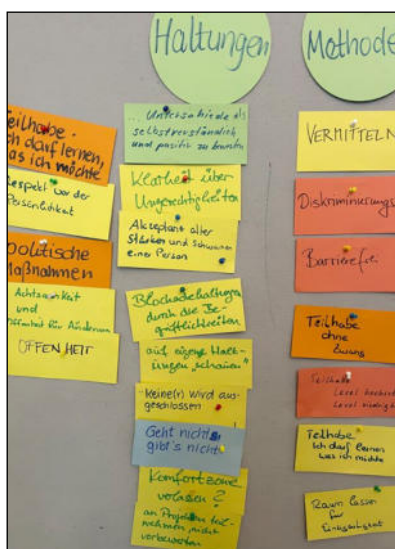 Haltungen
Methode
eilhabe.
ch darf lernen,
as ich möchte
espekt vor der
Persönlichkeit
politische
Maßnahmen
Achtsamkeit
und
ffenheit für Anderen
OFFENHEIT
... Unterschiede als
selbstverständlich
und positiv zu
Klarheit über
Ungerechtigkeiten
Akzeptanz aller
Stärken und Schwächen
einer Person
Blockadehaltungen
durch die Be-
grifflichkeiten
auf eigene Halt-
ungen „schauen“
Keine(r) wird aus-
geschlossen
Geht nicht,
gibt's nicht
Komfortzone
verlassen?
an Projekten teil-
nehmen, nicht
vorbewerten
VERMITTELN
Diskriminierungs
Barrierefrei
Teilhabe
ohne
Zwang
Teilhabe
Level
Level
Teilhabe
Ich darf lernen
was ich möchte
Raum lassen
für